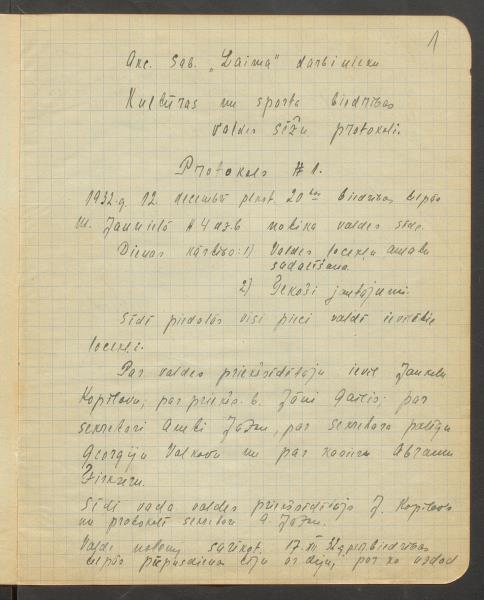 1
Akc. sab. „Laima" darbinieku
Kultūras un sporta biedrības
valdes sēžu protokoli.
Protokols # 1.
1932. g. 12. decembrī plkst. 20 biedrības telpās
M. Jauniela # 4 dz. 6 notika valdes sēde.
Dienas kārtība: 1) Valdes locekļu amatu
sadalīšana.
2) Tekoši jautājumi.
Sēdē piedalās visi pieci valdē ievēlētie
locekļi.
Par valdes priekšsēdētāju ievēl
Kopilovu; par priekšs. b. Jāni Gailis; par
sekretāri, par sekretāra palīgu
Georgiju Valkovu un par kasieri Abramu
Sēdi vada valdes priekšsēdētājs J. Kopilovs
un protokolē sekretārs A.
Valde nolemj sarīkot 17. XII 32. g. biedrības
telpās pēcpusdienas tēju ar deju, par ko uzdod